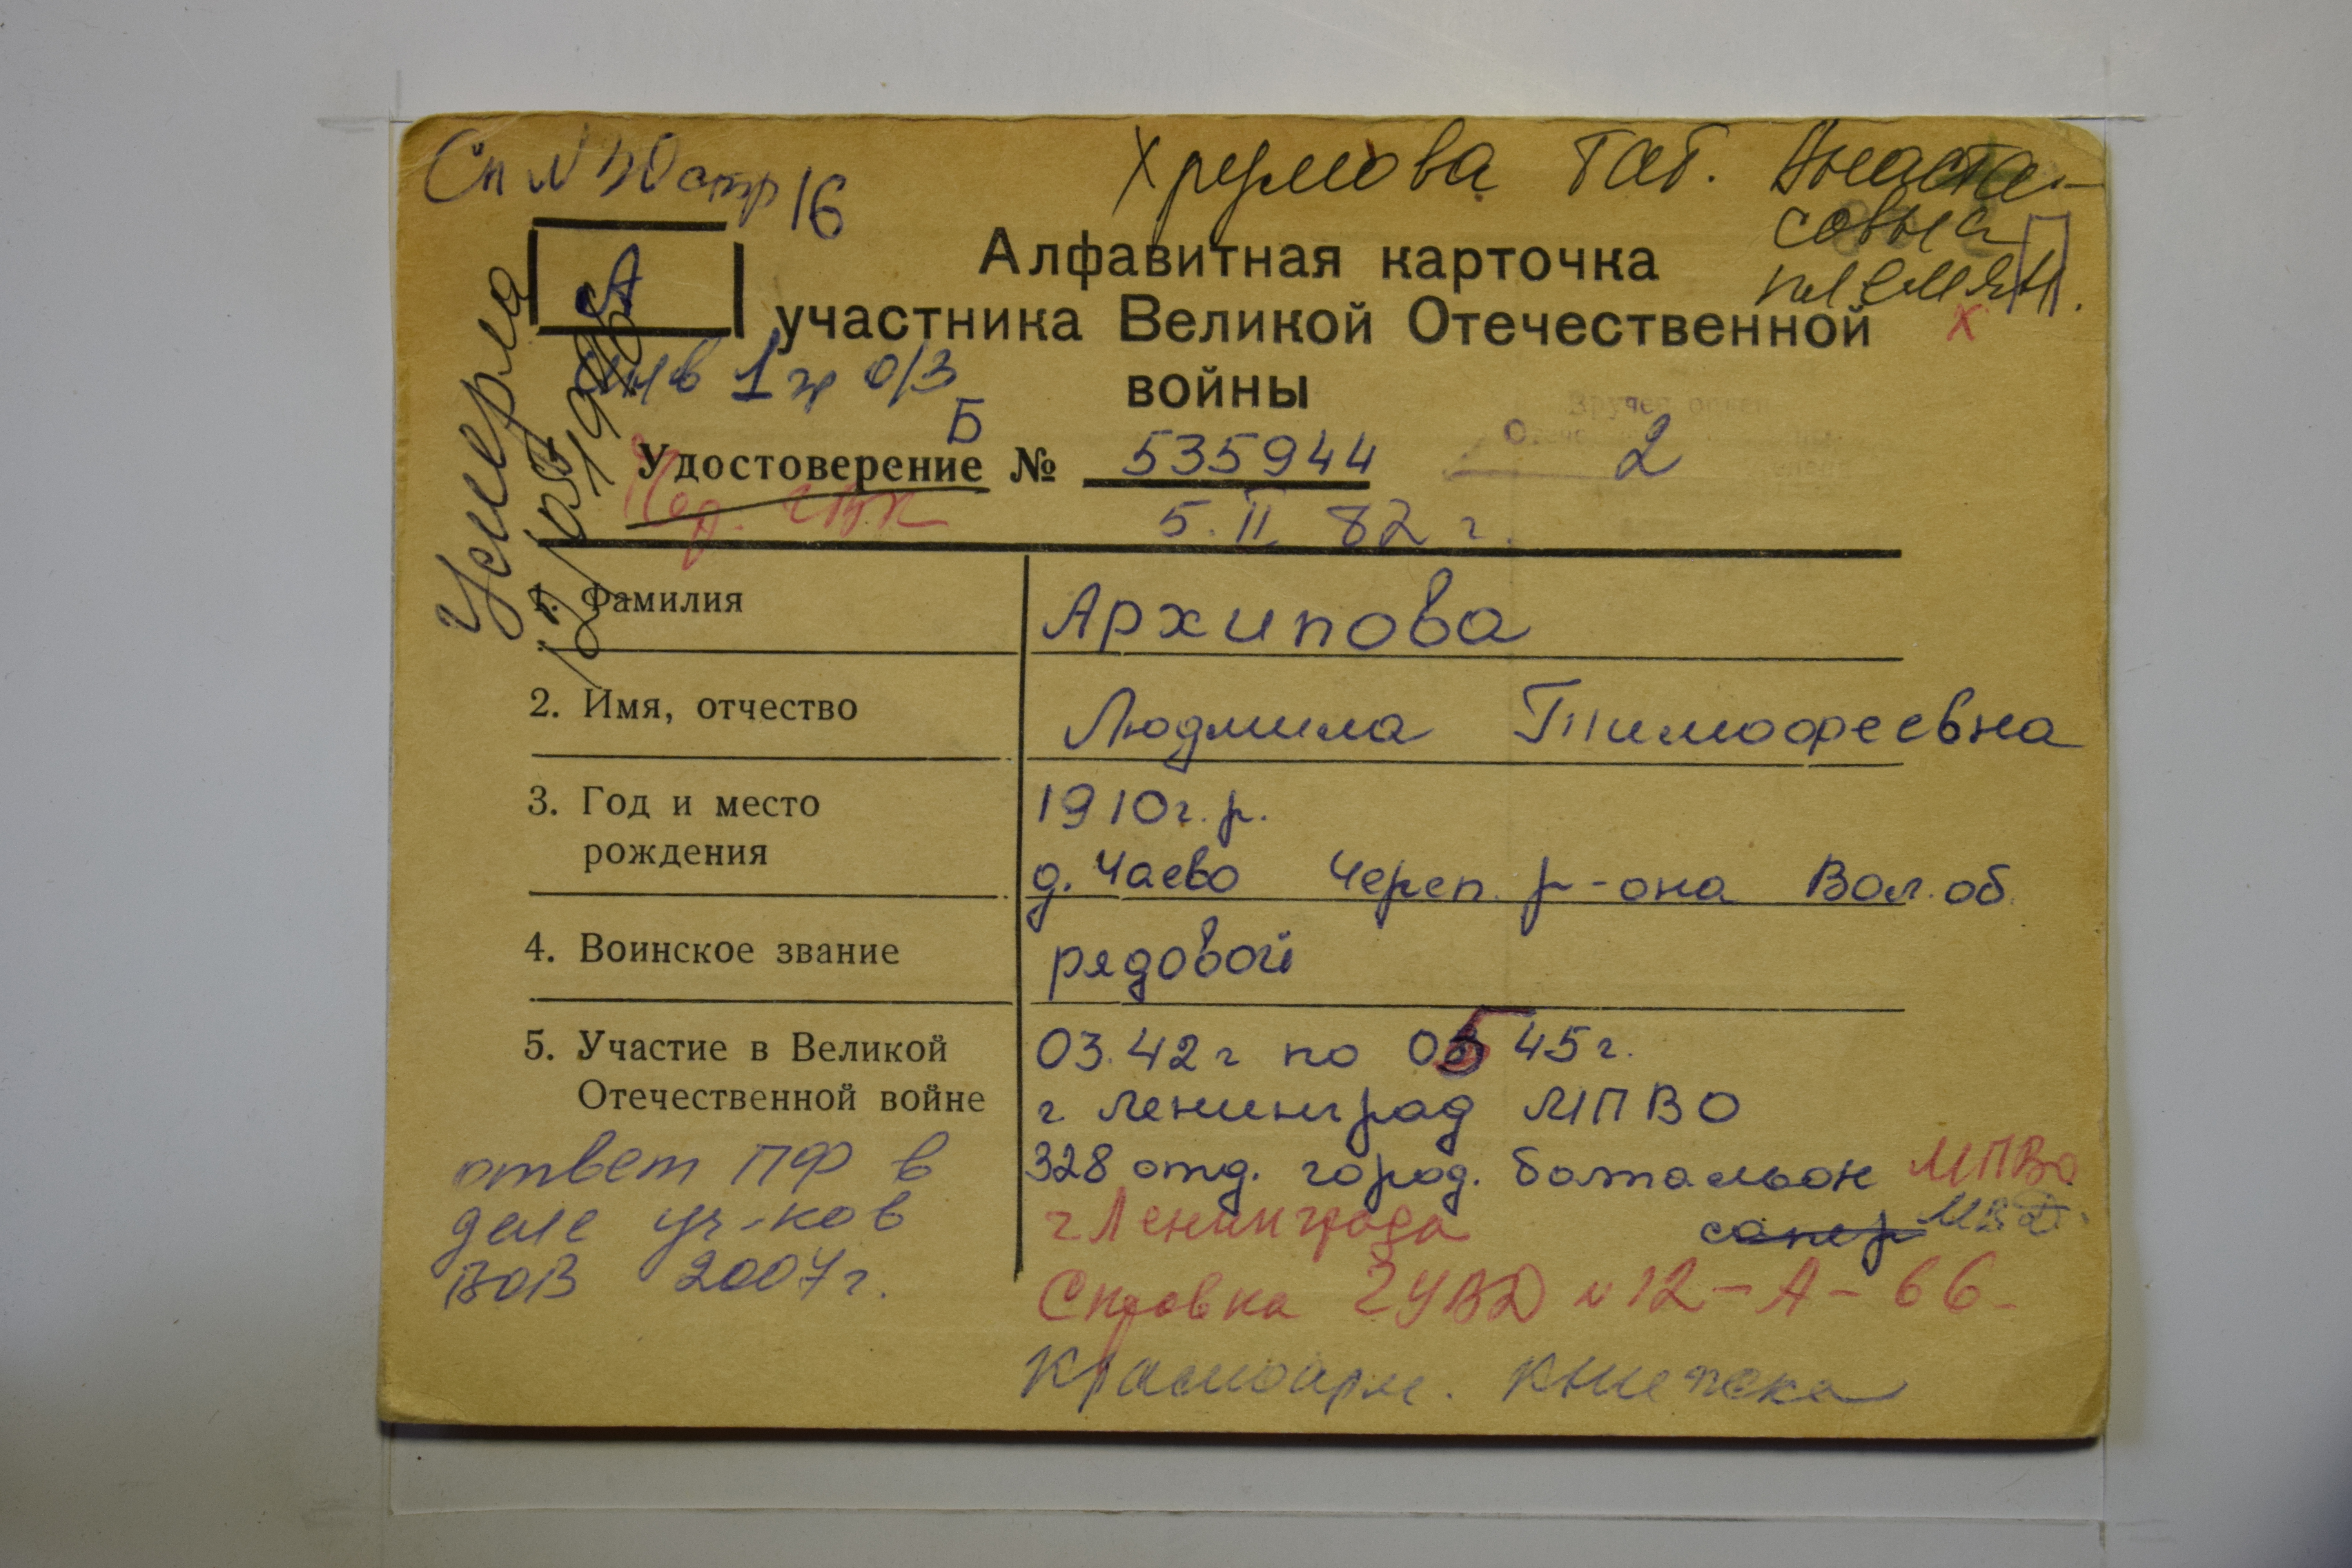 Сп N 30 стр 16
А
инв 1 гр о/з
Умерла
Алфавитная карточка
участника Великой Отечественной
войны
Б
Удостоверение № 535944 2
5.II 82 г.
1. Фамилия Архипова
2. Имя, отчество Людмила Тимофеевна
3. Год и место
рождения
1910 г. р.
д. Чаево Череп. р-она Вол. об.
4. Воинское звание рядовой
5. Участие в Великой
Отечественной войне
03.42 г по 05 45 г.
г Ленинград МПВО
328 отд. город. батальон МПВО
г Ленинграда сапер МВД.
Справка ГУВД N 12-А-66-
Красноарм. книжка
ответ ПФ в
деле уч-ков
ВОВ 2007 г.